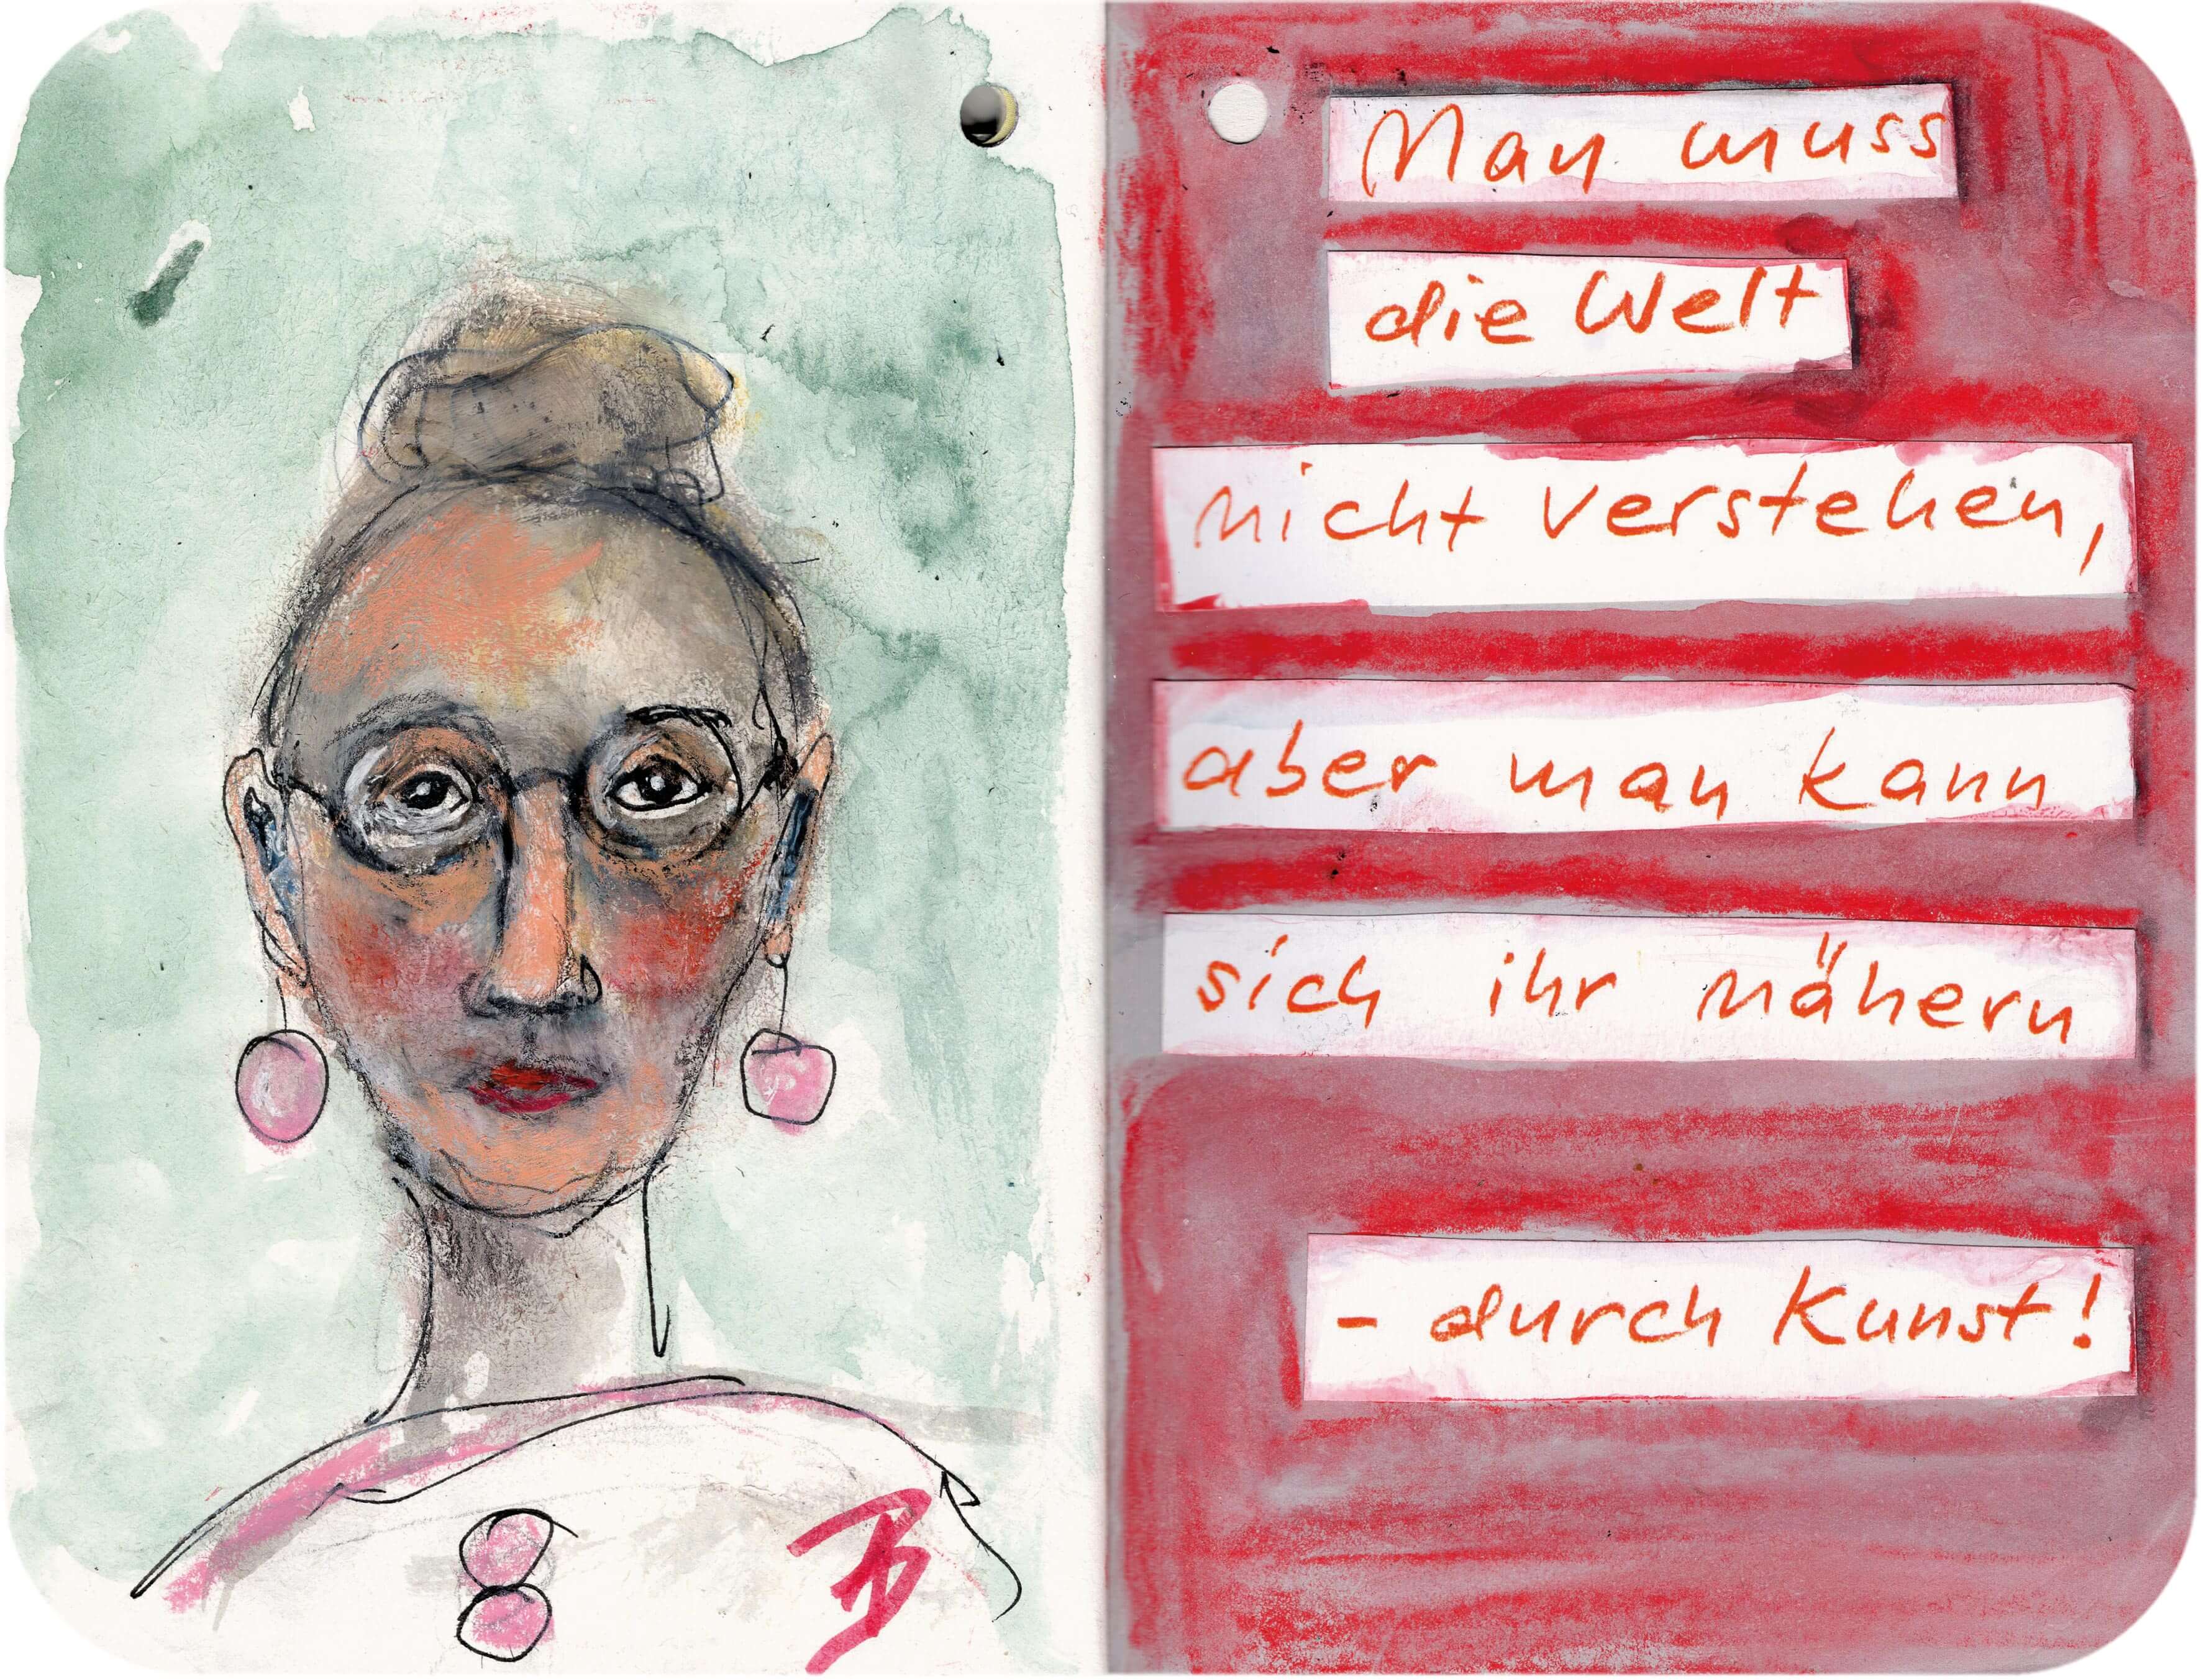 Man muss
die Welt
nicht verstehen,
aber man kann
sich ihr nähern
- durch Kunst!